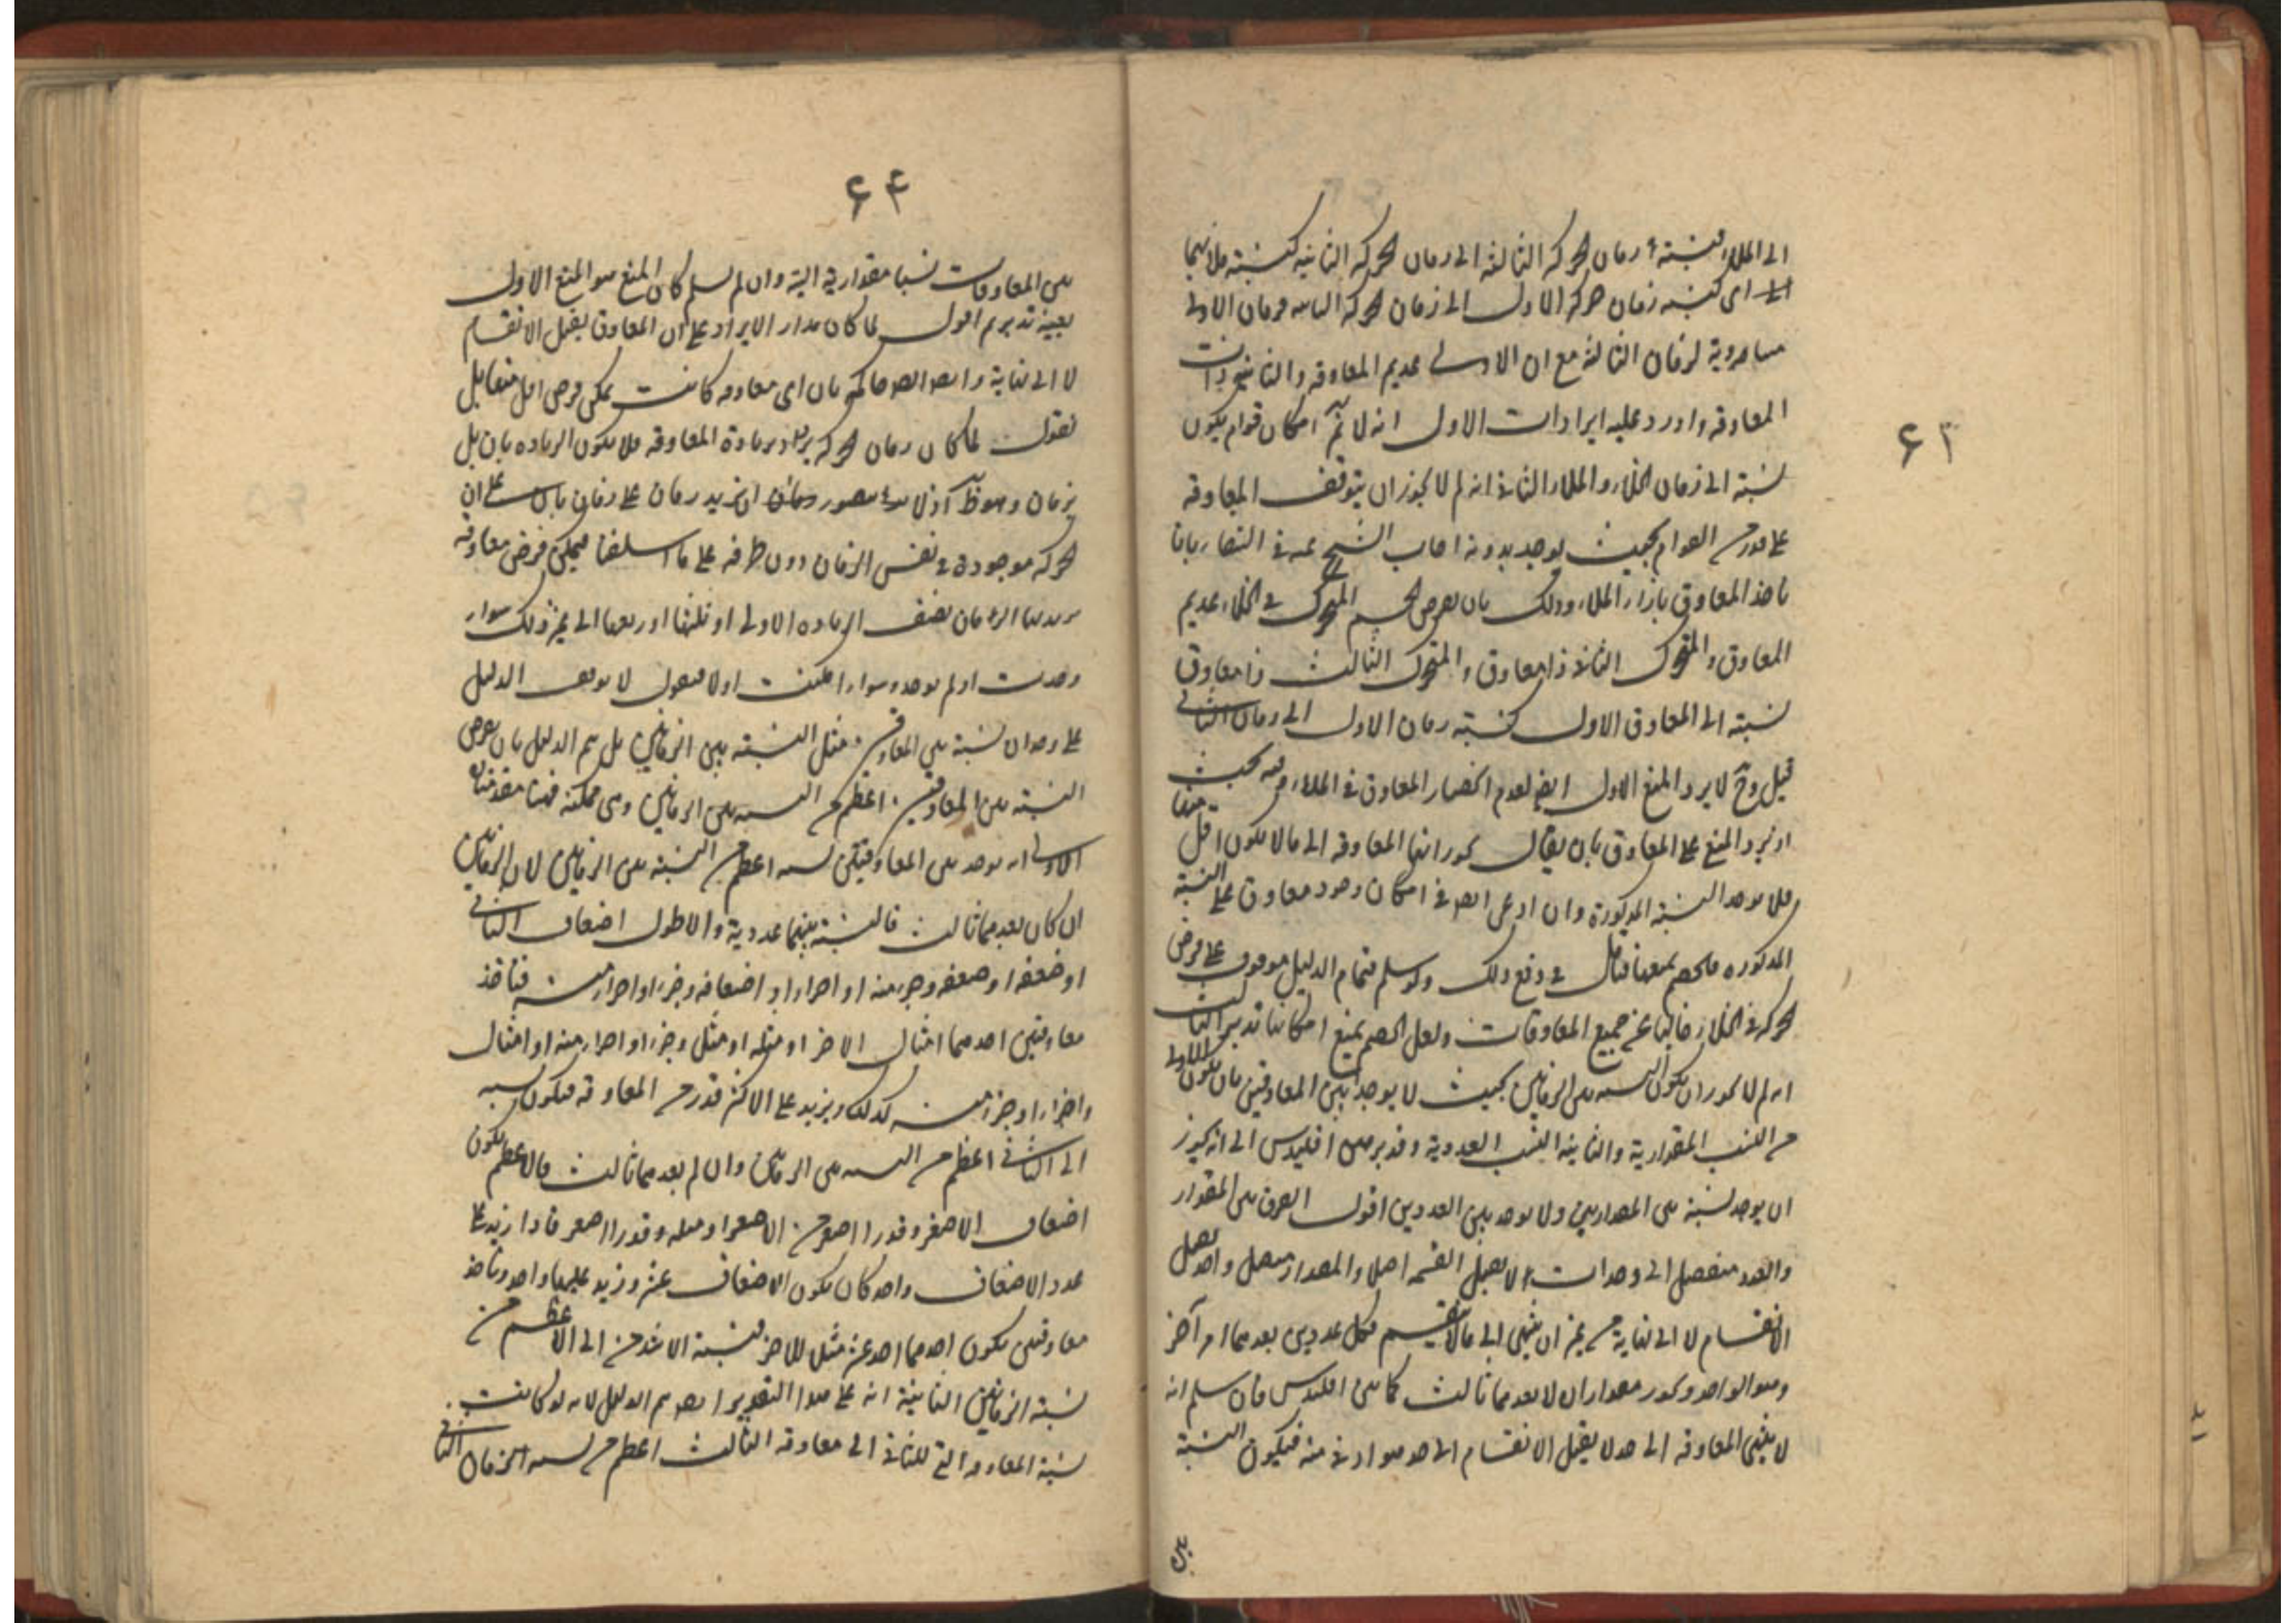 ۶۳
الى الملاء فنسبة زمان الحركة الثالثة الى زمان الحركة الثانية كنسبة ملائهما
اى كنسبة زمان حركة الاول الى زمان الحركة الثانية فزمان الاولى
مساوية لزمان الثالثة مع ان الاولى عديم المعاوقة والثانية ذات
المعاوقة واورد عليه ايرادات الاول انه لا نم امكان قوام يكون
نسبته الى زمان الخلاء والملاء الثانى انه لم لا يجوز ان يتوقف المعاوقة
على قدر من القوام بحيث يوجد بدونه اجاب الشيخ عنه فى الشفاء بانا
ناخذ المعاوق بازاء الملاء وذلك بان يفرض الجسم المتحرك فى الخلاء عديم
المعاوق والمتحرك الثانى ذا معاوق والمتحرك الثالث ذا معاوق
نسبته الى المعاوق الاول كنسبة زمان الاول الى زمان الثانى
قيل وح لا يرد المنع الاول ايض لعدم انحصار المعاوق فى الملاء وفيه بحيث
يرد المنع على المعاوق بان يقال يجوز انتهاء المعاوقة الى ما لا يكون اقل منها
فلا يوجد النسبة المذكورة وان ادعى فى امكان وجود معاوق على النسبة
المذكورة فالخصم يمنعها فتامل فى دفع ذلك ولو سلم فتمام الدليل موقوف على فرض
الحركة فى الخلاء خاليا عن جميع المعاوقات ولعل الخصم يمنع امكانها تدبر الثالث
انه لم لا يجوز ان يكون النسبة بين الزمانين بحيث لا يوجد بين المعاوقين بان يكون الاولى
من النسب المقدارية والثانية النسب العددية وقد برهن اقليدس الى انه يجوز
ان يوجد نسبة بين المقدارين ولا يوجد بين العددين اقول الفرق بين المقدار
والعدد منفصل الى وحدات لا يقبل القسمة اصلا والمقدار متصل واحد يقبل
الانقسام لا الى نهاية من غير ان ينتهى الى ما لا ينقسم فكل عددين يعدهما امر آخر
وهو الواحد ويجوز مقداران لا يعدهما ثالث كما بين اقليدس فان سلم انه
لا ينتهى المعاوقة الى حد لا يقبل الانقسام الى حد هو ادنى منه فيكون النسبة
بين
۶۴
بين المعاوقات نسبا مقدارية البتة وان لم يسلم كان المنع هو المنع الاول
بعينه تدبر ثم اقول لما كان مدار الايراد على ان المعاوق يقبل الانقسام
لا الى نهاية حاكم بان اى معاوقة كانت يمكن فرض اقل منها بل
نقول لما كان زمان الحركة يزداد بزيادة المعاوقة فلا يكون الزيادة بان بل
بزمان وهو ظ اذ لا يتصور ان يزيد زمان على زمان بان على ان
الحركة موجودة فى نفس الزمان دون طرفه على ما اسلفنا فيمكن فرض معاوقة
يزيد بها الزمان نصف الزيادة الاولى او ثلثها او ربعها الى غير ذلك سواء
وجدت او لم يوجد وسواء امكنت اولا فنقول لا يوقف الدليل
على وجدان نسبة بين المعاوقين مثل النسبة بين الزمانين بل يتم الدليل بان يفرض
النسبة بين المعاوقين اعظم من النسبة بين الزمانين وهى ممكنة فهنا مقدمتان
الاولى انه يوجد بين المعاوقتين نسبة اعظم من النسبة بين الزمانين لان الزمانين
ان كان يعدهما ثالث فالنسبة بينهما عددية والاطول اضعاف الثانى
او ضعفه او ضعفه وجزء منه او اجزاء او اضعافه وجزء او اجزاء منه فناخذ
معاوقتين احدهما امثال الاخر او مثله او مثل وجزء او اجزاء منه او امثال
واجزاء او جزء منه كذلك ويزيد على الاكثر قدر من المعاوقة فيكون نسبته
الى الثانى اعظم من النسبة بين الزمانين وان لم يعدهما ثالث فالاعظم يكون
اضعاف الاصغر وقدرا اصغر من الاصغر او مثله وقدرا اصغر فاذا ازيد على
عدد الاضعاف واحد كان يكون الاضعاف عشرة وزيد عليها واحد وناخذ
معاوقتين يكون احدهما احد عشر مثل للاخر فنسبة الاشد منه الى الاعظم من
نسبة الزمانين الثانية انه على هذا التقدير ايضا يتم الدليل لانه لو كانت
نسبة المعاوقة التى للثانى الى معاوقة الثالث اعظم من نسبة الزمان الثانى